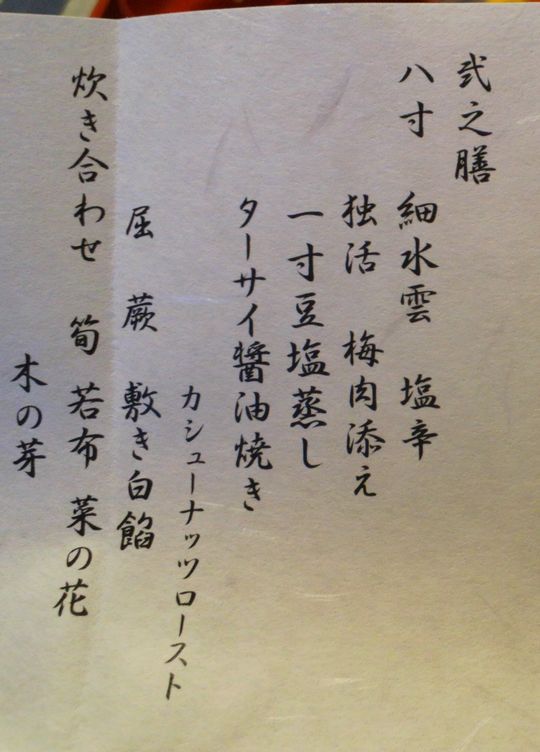 弐之膳
八寸　細水雲　塩辛
独活　梅肉添え
一寸豆塩蒸し
ターサイ醤油焼き
カシューナッツロースト
屈　蕨　敷き白餡
炊き合わせ　筍　若布　菜の花
木の芽